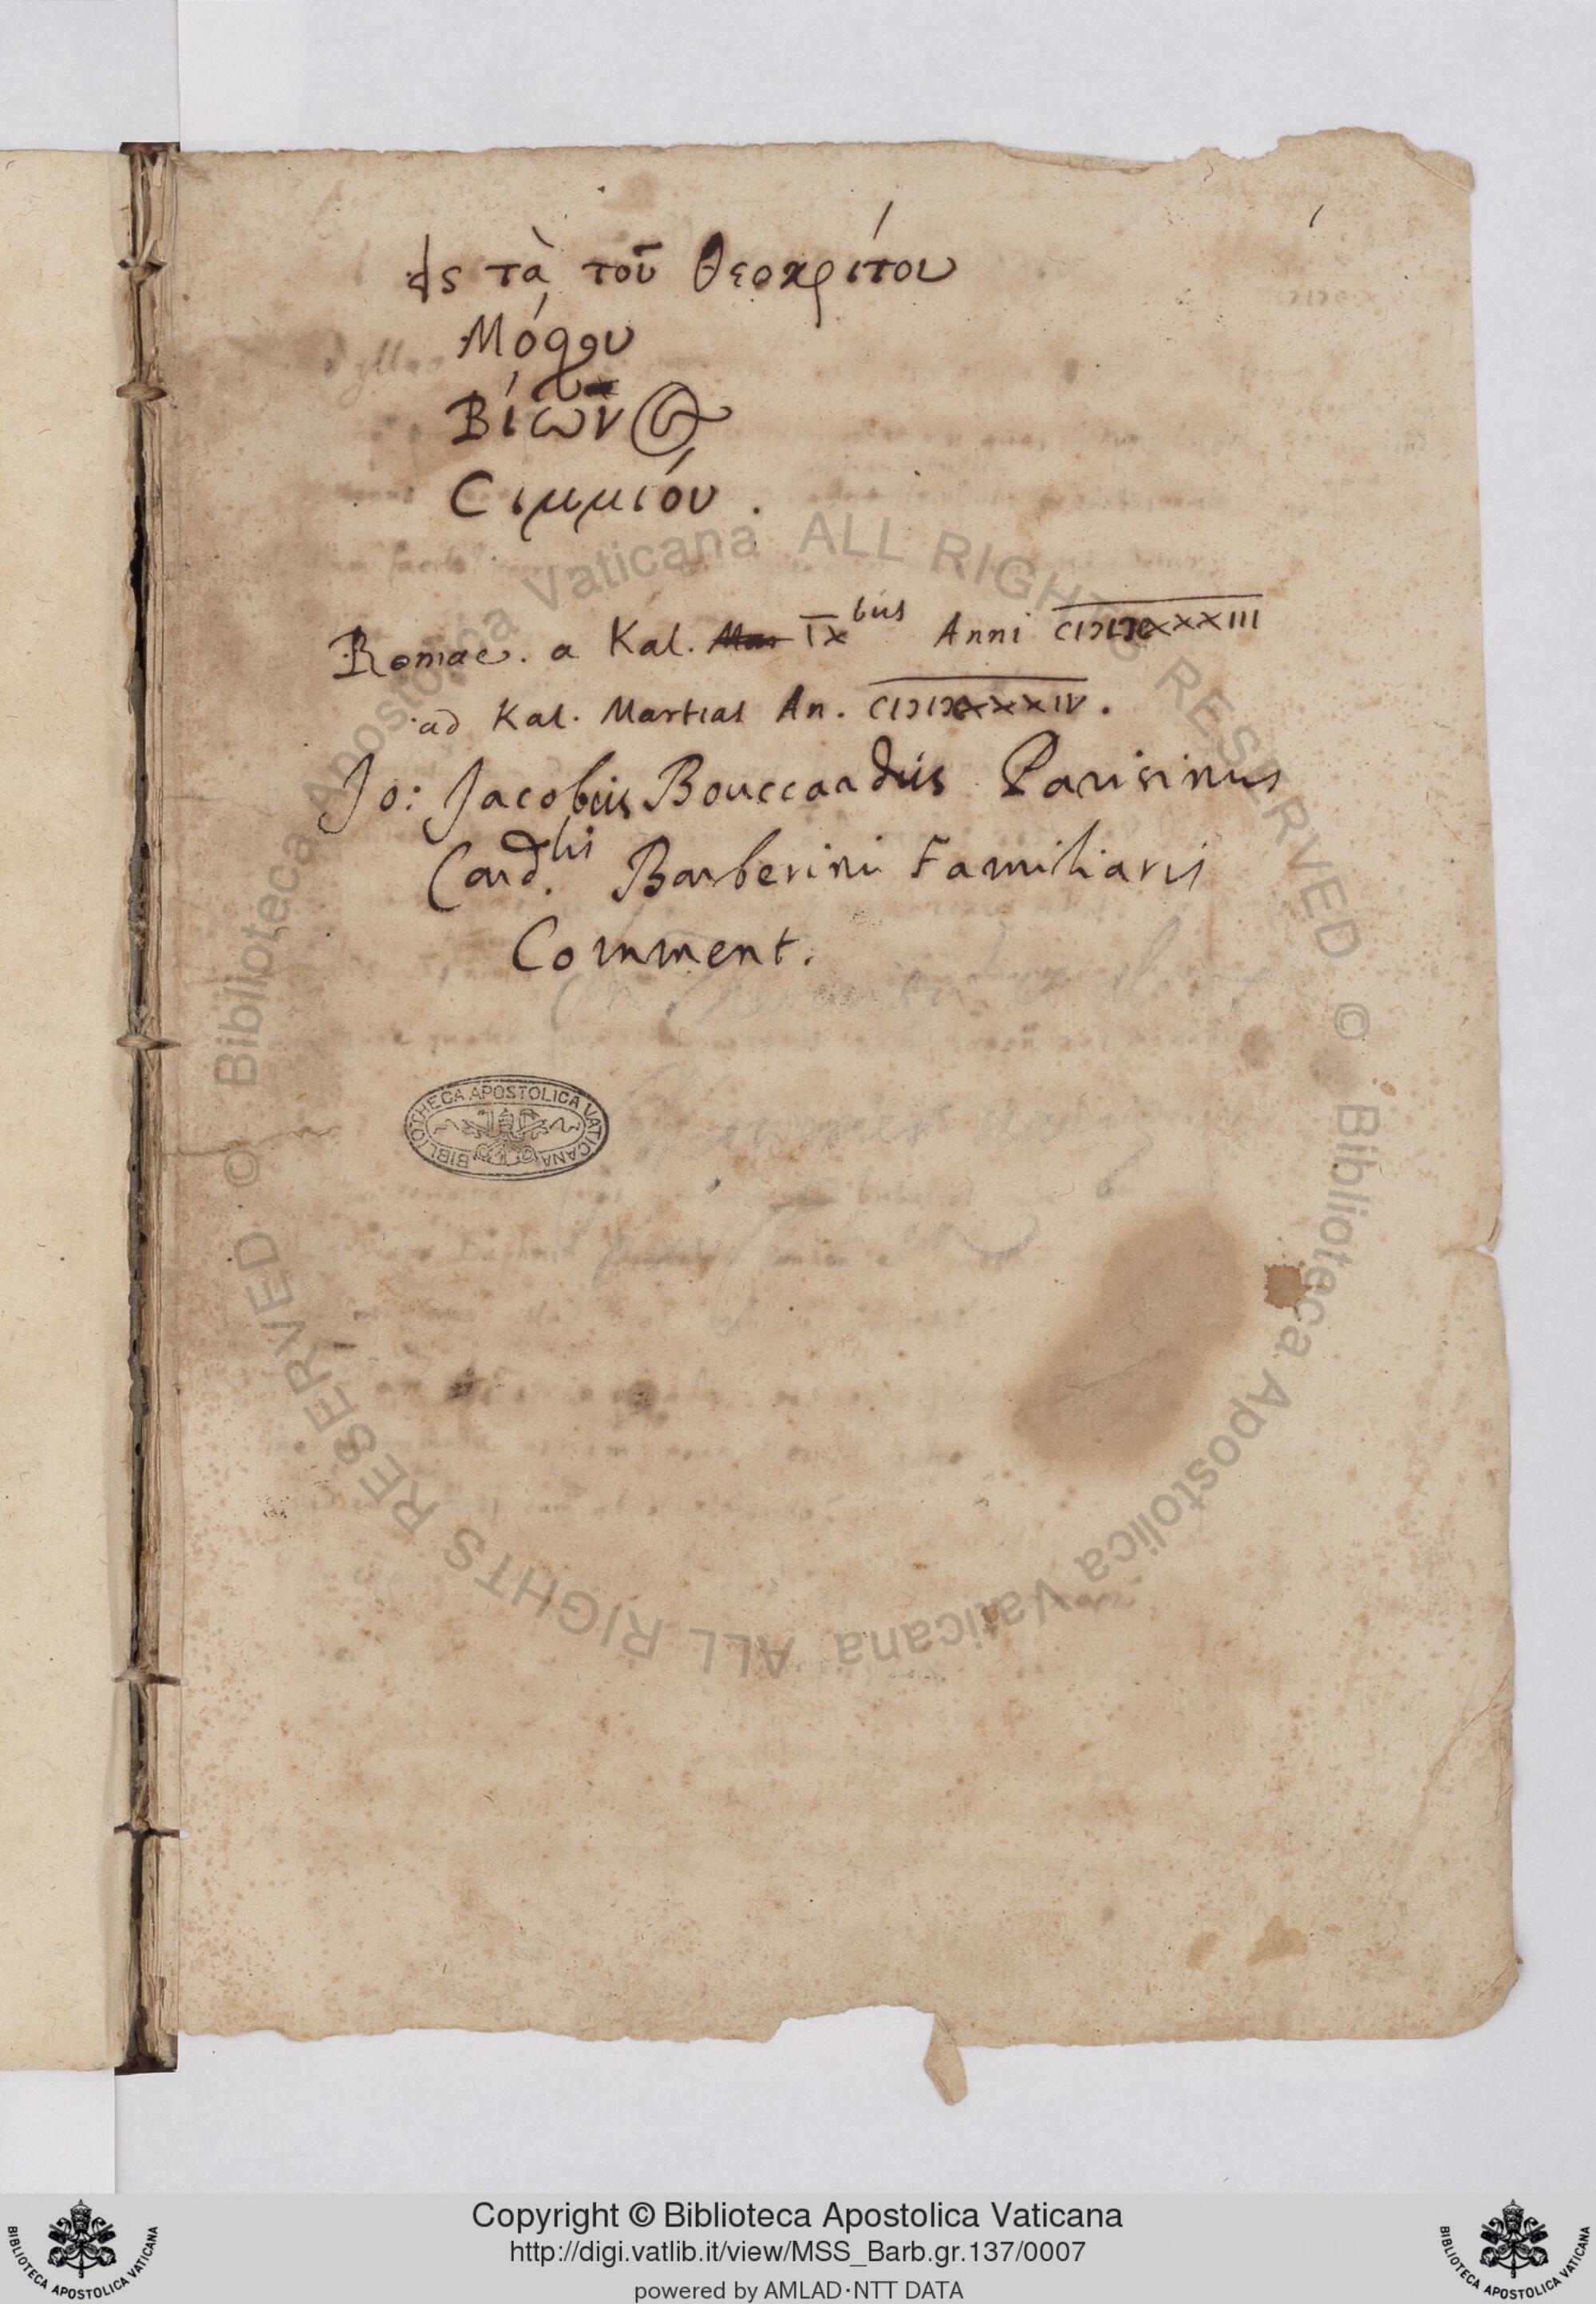 εἰς τὰ τοῦ Θεοκρίτου
Μόσχου
Βίωνος
Σιμμίου .
Romae. a Kal. IXbus Anni CIƆIƆCXXXIII
ad Kal. Martias An. CIƆIƆCXXXIV.
Jo: Jacobus Bouccardus Parisinus
Card.lis Barberini Familiaris
Comment.
BIBLIOTHECA APOSTOLICA VATICANA
© Biblioteca Apostolica Vaticana ALL RIGHTS RESERVED
© Biblioteca Apostolica Vaticana ALL RIGHTS RESERVED
Copyright © Biblioteca Apostolica Vaticana
http://digi.vatlib.it/view/MSS_Barb.gr.137/0007
powered by AMLAD·NTT DATA
BIBLIOTECA APOSTOLICA VATICANA
BIBLIOTECA APOSTOLICA VATICANA